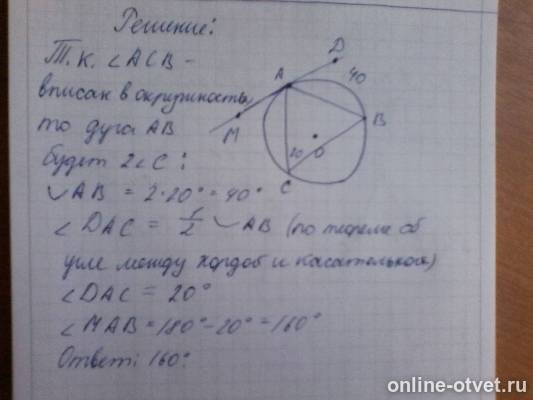 Решение:
Т.К. ∠ACB -
вписан в окружность,
то дуга AB
будет 2∠C:
◡AB = 2·20° = 40°
∠DAC = 1/2 ◡AB (по теореме об
угле между хордой и касательной)
∠DAC = 20°
∠MAB = 180° - 20° = 160°
Ответ: 160°
D
A
40
M
B
20
O
C
online-otvet.ru